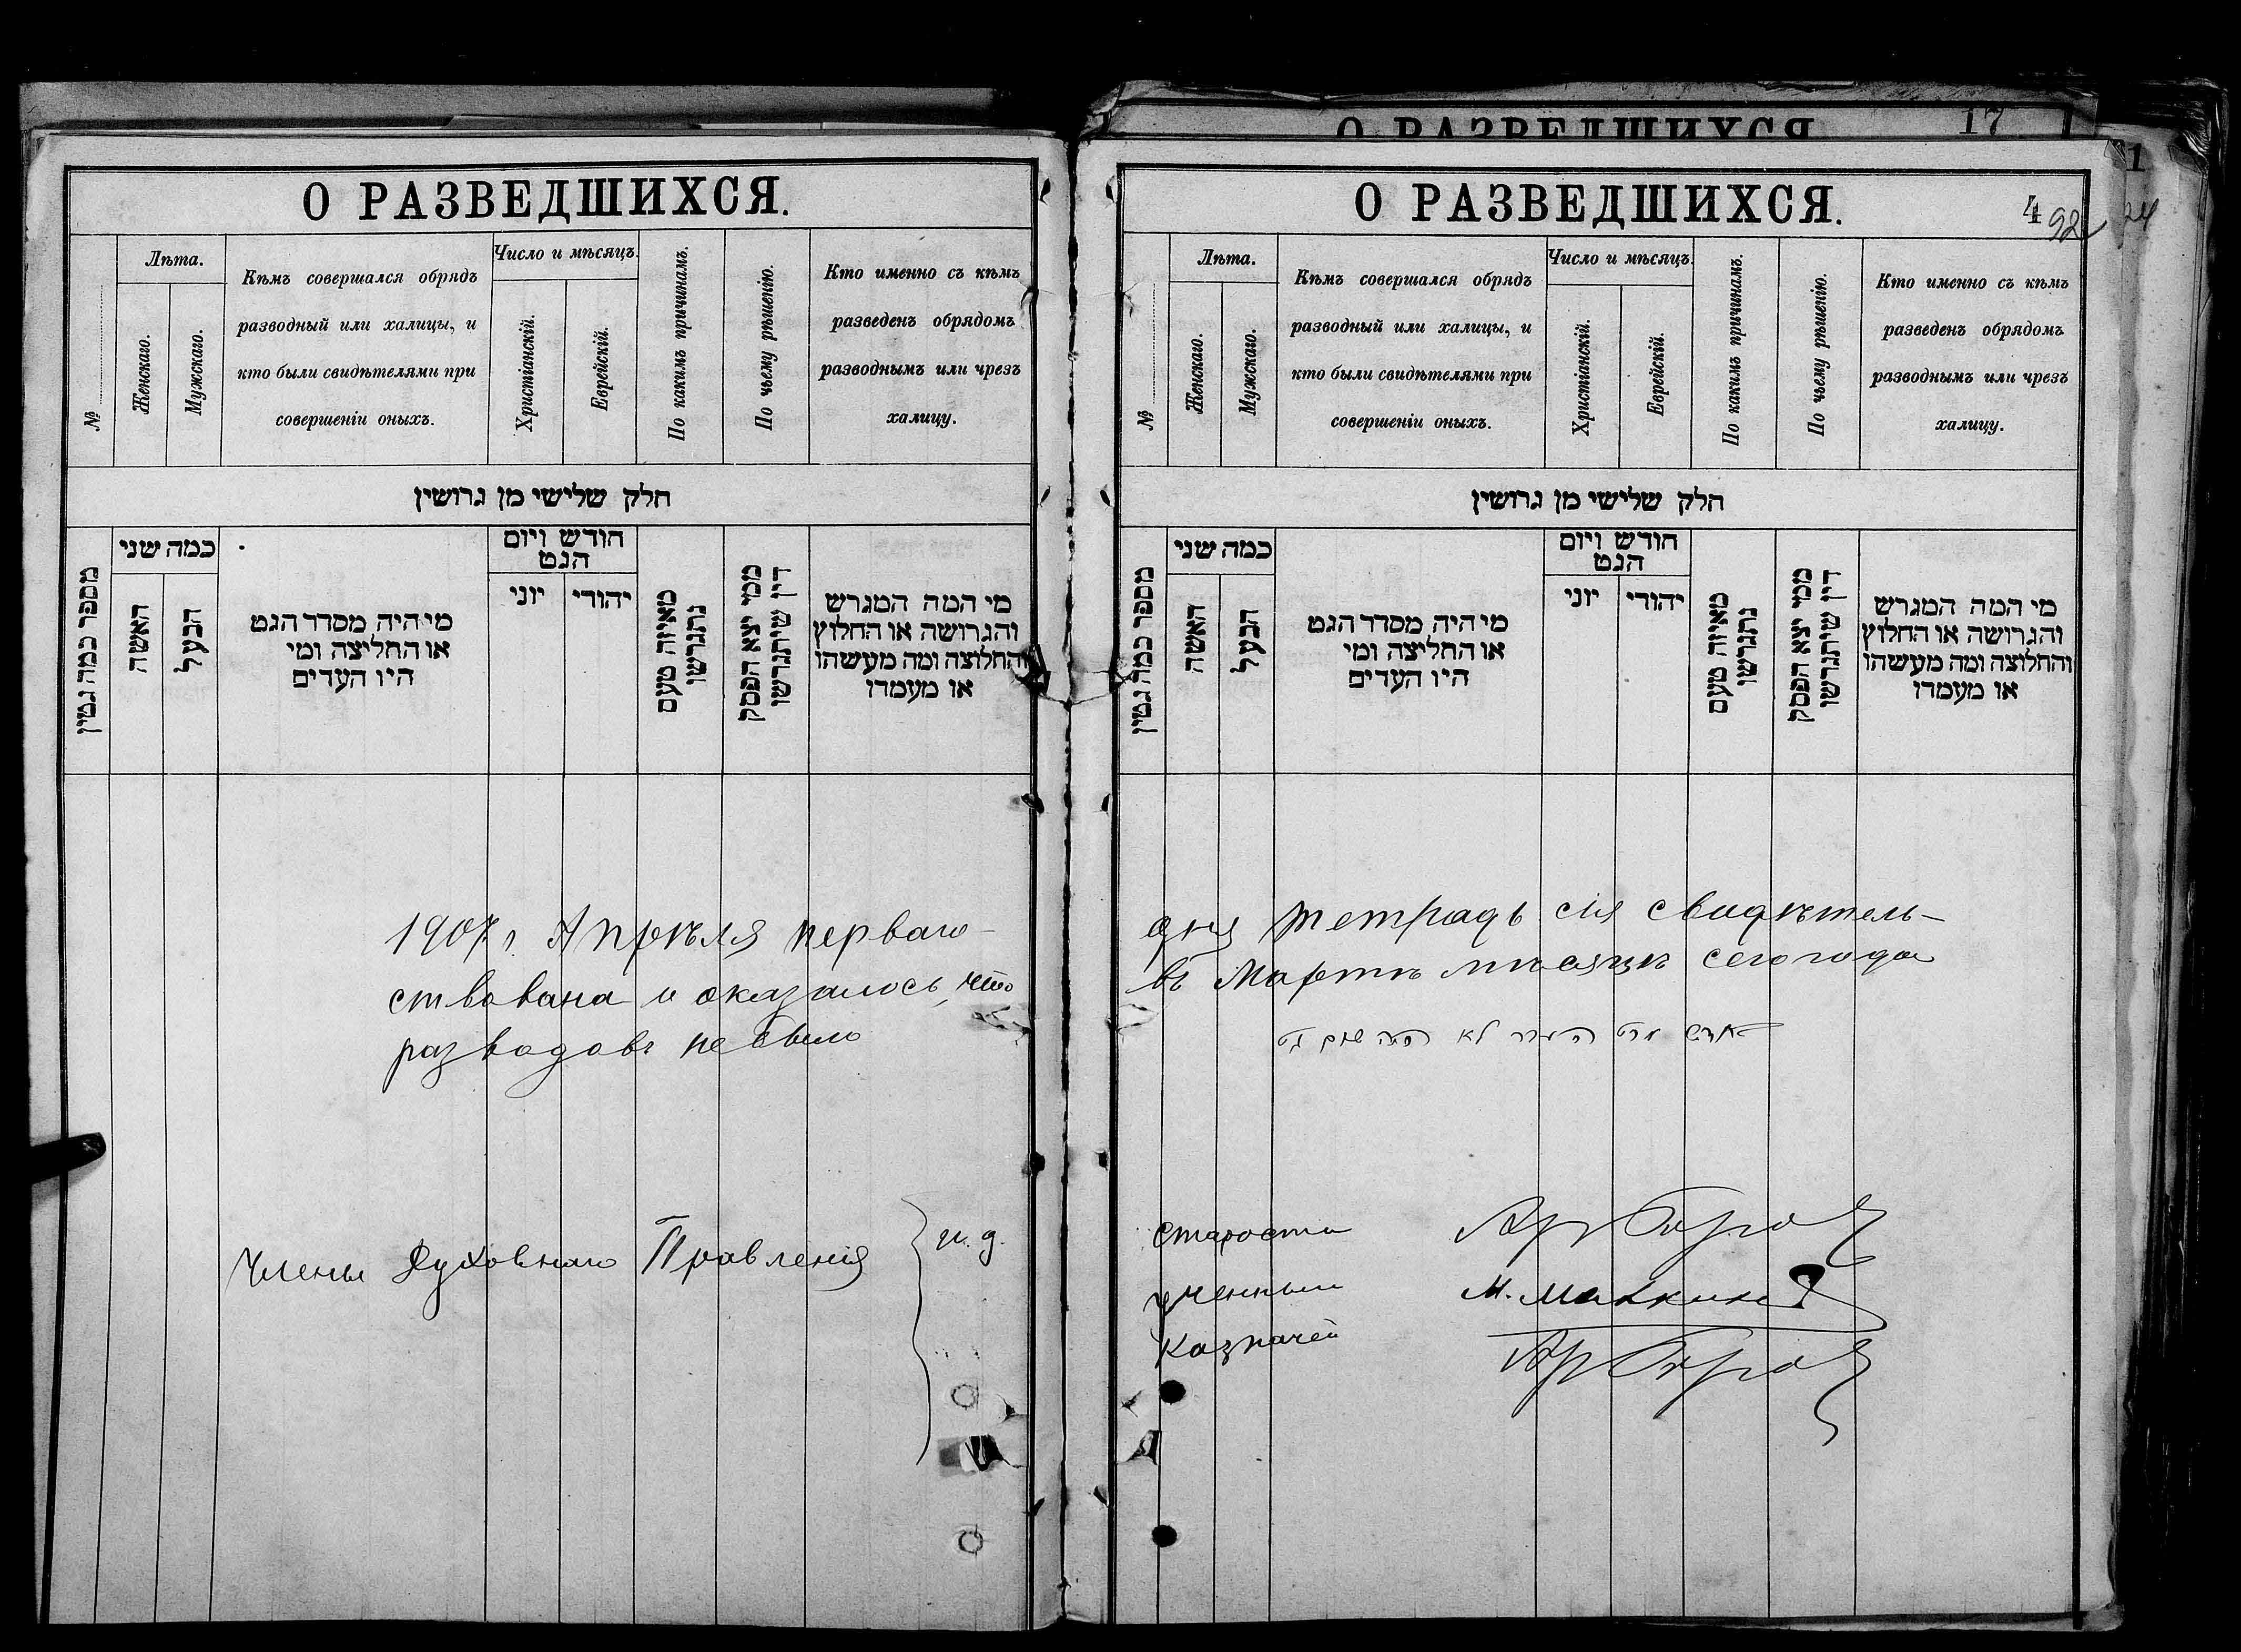 О РАЗВЕДШИХСЯ.
№
Лѣта.
Женскаго.
Мужскаго.
Кѣмъ совершался обрядъ
разводный или халицы, и
кто были свидѣтелями при
совершеніи оныхъ.
Число и мѣсяцъ.
Христіанскій.
Еврейскій.
По какимъ причинамъ.
По чьему рѣшенію.
Кто именно съ кѣмъ
разведенъ обрядомъ
разводнымъ или чрезъ
халицу.
חלק שלישי מן גרושין
מספר כמה גטין
כמה שני
האשה
הבעל
מי היה מסדר הגט
או החליצה ומי
היו העדים
חודש ויום
הגט
יוני
יהודי
מאיזה טעם
נתגרשו
ממי יצא הפסק
דין שיתגרשו
מי המה המגרש
והגרושה או החלוץ
והחלוצה ומה מעשהו
או מעמדו
1907 г. Апрѣля перваго
ствована и оказалось, что
разводовъ не было
Члены Духовнаго Правленія
и. д.
О РАЗВЕДШИХСЯ
17
1
24
О РАЗВЕДШИХСЯ.
4
92
№
Лѣта.
Женскаго.
Мужскаго.
Кѣмъ совершался обрядъ
разводный или халицы, и
кто были свидѣтелями при
совершеніи оныхъ.
Число и мѣсяцъ.
Христіанскій.
Еврейскій.
По какимъ причинамъ.
По чьему рѣшенію.
Кто именно съ кѣмъ
разведенъ обрядомъ
разводнымъ или чрезъ
халицу.
חלק שלישי מן גרושין
מספר כמה גטין
כמה שני
האשה
הבעל
מי היה מסדר הגט
או החליצה ומי
היו העדים
חודש ויום
הגט
יוני
יהודי
מאיזה טעם
נתגרשו
ממי יצא הפסק
דין שיתגרשו
מי המה המגרש
והגרושה או החלוץ
והחלוצה ומה מעשהו
או מעמדו
дня тетрадь сія свидѣтель-
въ Мартѣ мѣсяцѣ сего года
לא היה שום גט
Староста
Ученый
М. Малкинъ
Казначей